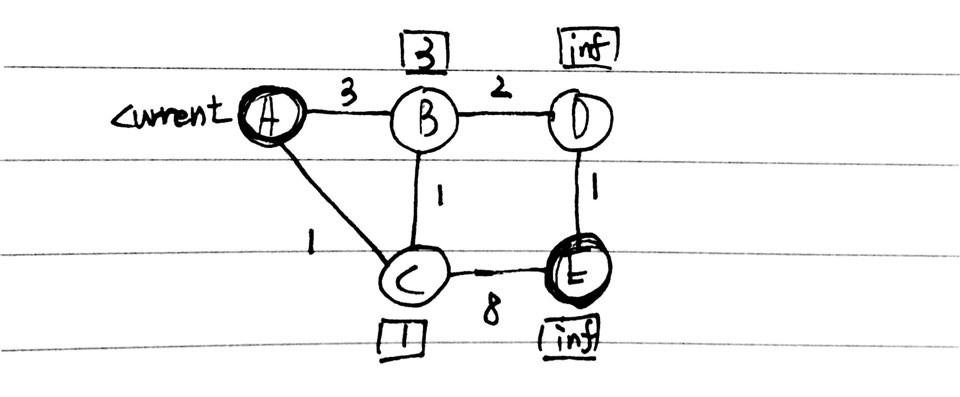 3 inf
current A 3 B 2 D
1 1
1
C 8 E
1 inf